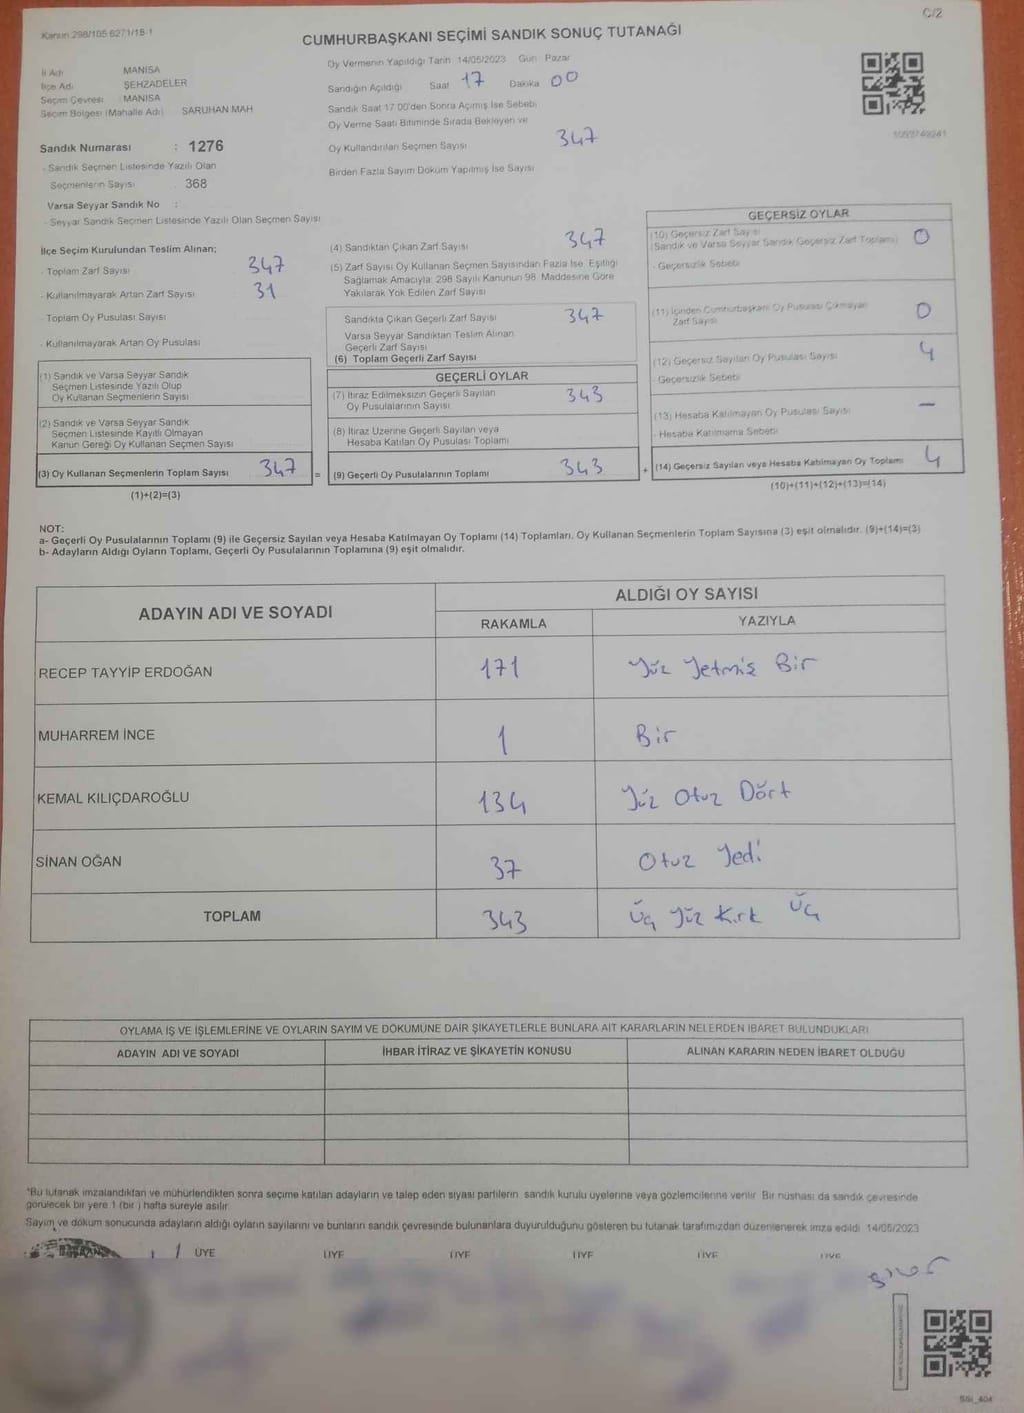 C/2
Kanun 298/105 6271/18-1
CUMHURBAŞKANI SEÇİMİ SANDIK SONUÇ TUTANAĞI
İl Adı MANİSA
İlçe Adı ŞEHZADELER
Seçim Çevresi MANİSA
Seçim Bölgesi (Mahalle Adı) SARUHAN MAH
Sandık Numarası : 1276
- Sandık Seçmen Listesinde Yazılı Olan
Seçmenlerin Sayısı 368
Varsa Seyyar Sandık No :
- Seyyar Sandık Seçmen Listesinde Yazılı Olan Seçmen Sayısı
Oy Vermenin Yapıldığı Tarih 14/05/2023 Gün Pazar
Sandığın Açıldığı Saat 17 Dakika 00
Sandık Saat 17.00'den Sonra Açılmış İse Sebebi
Oy Verme Saati Bitiminde Sırada Bekleyen ve
Oy Kullandırılan Seçmen Sayısı 347
Birden Fazla Sayım Döküm Yapılmış İse Sayısı
İlçe Seçim Kurulundan Teslim Alınan;
- Toplam Zarf Sayısı 347
- Kullanılmayarak Artan Zarf Sayısı 31
- Toplam Oy Pusulası Sayısı
- Kullanılmayarak Artan Oy Pusulası
(1) Sandık ve Varsa Seyyar Sandık
Seçmen Listesinde Yazılı Olup
Oy Kullanan Seçmenlerin Sayısı
(2) Sandık ve Varsa Seyyar Sandık
Seçmen Listesinde Kayıtlı Olmayan
Kanun Gereği Oy Kullanan Seçmen Sayısı
(3) Oy Kullanan Seçmenlerin Toplam Sayısı 347 =
(1)+(2)=(3)
(4) Sandıktan Çıkan Zarf Sayısı 347
(5) Zarf Sayısı Oy Kullanan Seçmen Sayısından Fazla İse, Eşitliği
Sağlamak Amacıyla 298 Sayılı Kanunun 98. Maddesine Göre
Yakılarak Yok Edilen Zarf Sayısı
Sandıkta Çıkan Geçerli Zarf Sayısı 347
Varsa Seyyar Sandıktan Teslim Alınan
Geçerli Zarf Sayısı
(6) Toplam Geçerli Zarf Sayısı
GEÇERLİ OYLAR
(7) İtiraz Edilmeksizin Geçerli Sayılan
Oy Pusulalarının Sayısı 343
(8) İtiraz Üzerine Geçerli Sayılan veya
Hesaba Katılan Oy Pusulası Toplamı
(9) Geçerli Oy Pusulalarının Toplamı 343 +
GEÇERSİZ OYLAR
(10) Geçersiz Zarf Sayısı
(Sandık ve Varsa Seyyar Sandık Geçersiz Zarf Toplamı) 0
- Geçersizlik Sebebi
(11) İçinden Cumhurbaşkanı Oy Pusulası Çıkmayan
Zarf Sayısı 0
(12) Geçersiz Sayılan Oy Pusulası Sayısı 4
- Geçersizlik Sebebi
(13) Hesaba Katılmayan Oy Pusulası Sayısı –
- Hesaba Katılmama Sebebi
(14) Geçersiz Sayılan veya Hesaba Katılmayan Oy Toplamı 4
(10)+(11)+(12)+(13)=(14)
NOT:
a- Geçerli Oy Pusulalarının Toplamı (9) ile Geçersiz Sayılan veya Hesaba Katılmayan Oy Toplamı (14) Toplamları, Oy Kullanan Seçmenlerin Toplam Sayısına (3) eşit olmalıdır. (9)+(14)=(3)
b- Adayların Aldığı Oyların Toplamı, Geçerli Oy Pusulalarının Toplamına (9) eşit olmalıdır.
ADAYIN ADI VE SOYADI ALDIĞI OY SAYISI
RAKAMLA YAZIYLA
RECEP TAYYİP ERDOĞAN 171 Yüz Yetmiş Bir
MUHARREM İNCE 1 Bir
KEMAL KILIÇDAROĞLU 134 Yüz Otuz Dört
SİNAN OĞAN 37 Otuz Yedi
TOPLAM 343 Üç Yüz Kırk Üç
OYLAMA İŞ VE İŞLEMLERİNE VE OYLARIN SAYIM VE DÖKÜMÜNE DAİR ŞİKAYETLERLE BUNLARA AİT KARARLARIN NELERDEN İBARET BULUNDUKLARI
ADAYIN ADI VE SOYADI İHBAR İTİRAZ VE ŞİKAYETİN KONUSU ALINAN KARARIN NEDEN İBARET OLDUĞU
*Bu tutanak imzalandıktan ve mühürlendikten sonra seçime katılan adayların ve talep eden siyasi partilerin, sandık kurulu üyelerine veya gözlemcilerine verilir. Bir nüshası da sandık çevresinde
görülecek bir yere 1 (bir ) hafta süreyle asılır.
Sayım ve döküm sonucunda adayların aldığı oyların sayılarını ve bunların sandık çevresinde bulunanlara duyurulduğunu gösteren bu tutanak tarafımızdan düzenlenerek imza edildi. 14/05/2023
ÜYE ÜYE ÜYE ÜYE ÜYE ÜYE